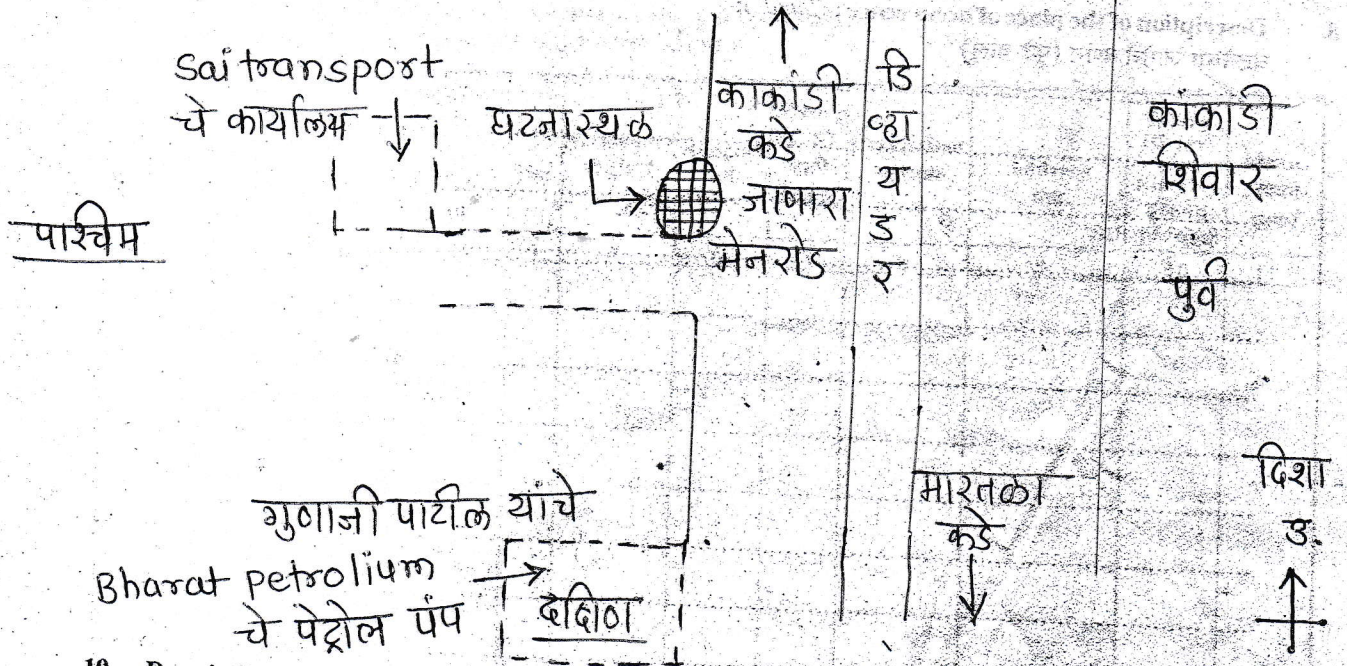 Sai transport
चे कार्यालय
घटनास्थळ
पाश्चिम
काकांडी
कडे
जाणारा
मेनरोड
डि
व्हा
य
ड
र
कांकाडी
शिवार
पुर्व
गुणाजी पाटील यांचे
Bharat petrolium
चे पेट्रोल पंप
दक्षिण
मारतळा
कडे
दिशा
उ.